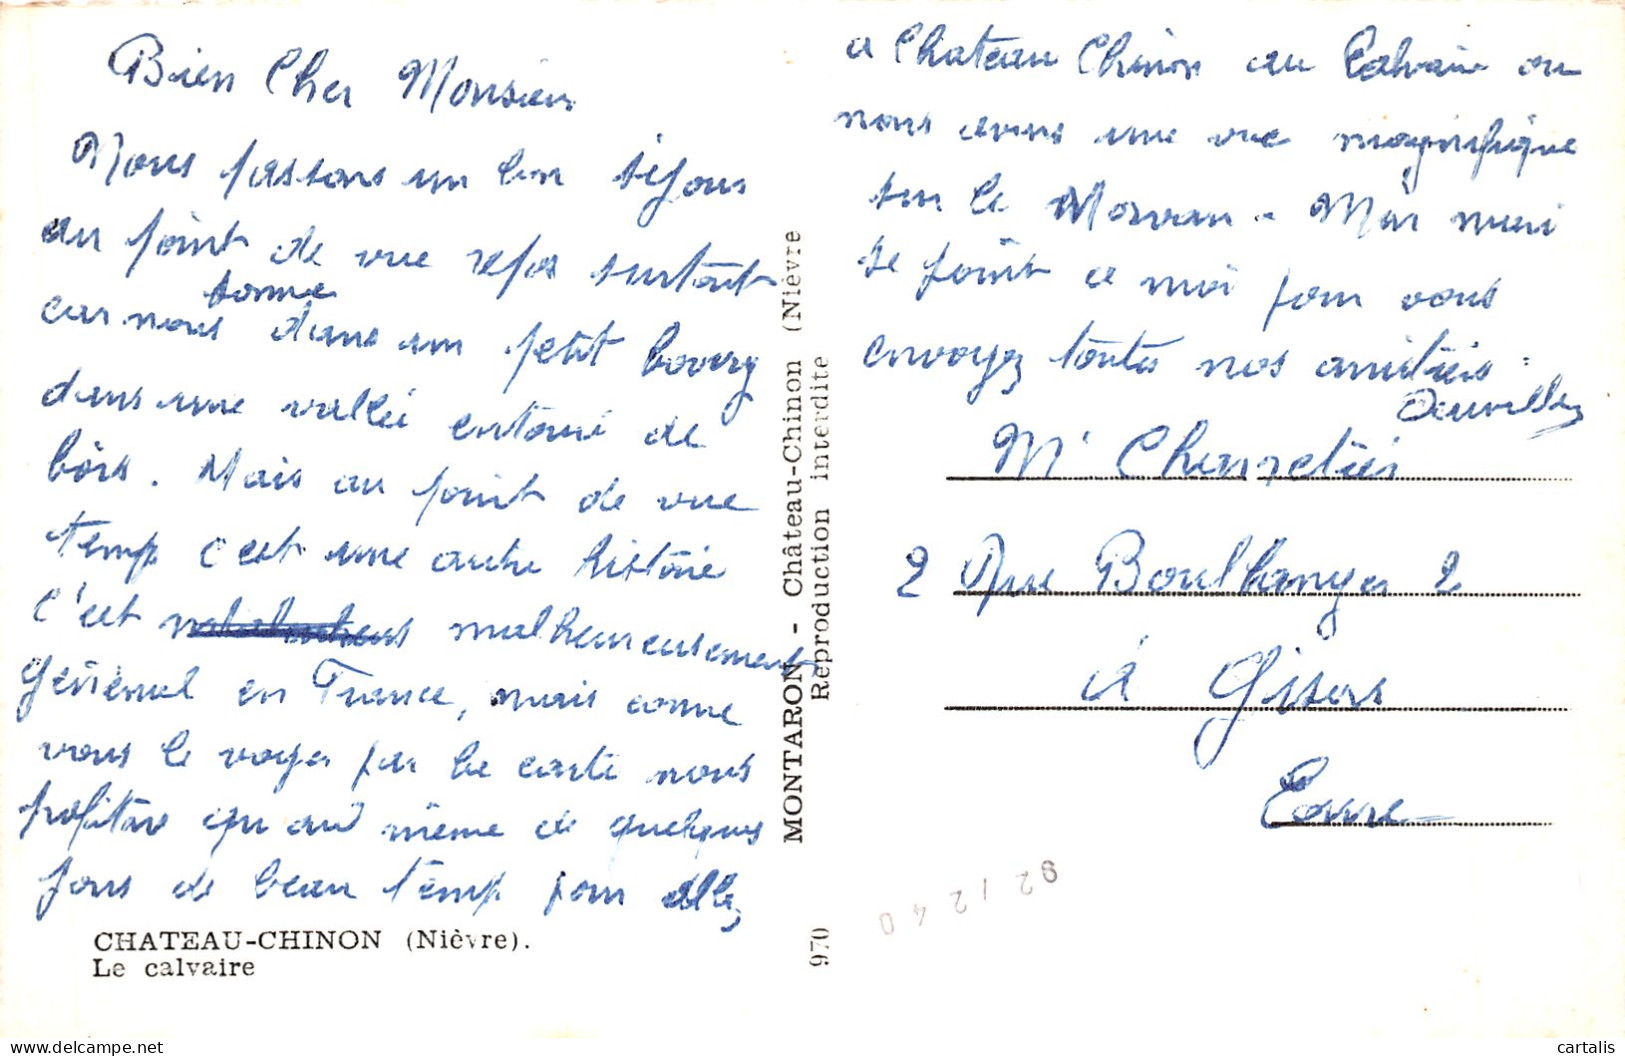 Bien Cher Monsieur
Nous passons un bon séjour
au point de vue repos surtout
car nous somme dans un petit bourg
dans une vallée entouré de
bois. Mais au point de vue
temp c'est une autre histoire
c'est malheureusement
général en France, mais comme
vous le voyer par la carte nous
profitons quand même de quelques
jours de beau temp pour allez
a Chateau Chinon au Calvaire ou
nous avons une vue magnifique
sur le Morvan - Mon mari
se joint a moi pour vous
envoyez toutes nos amitiés.
Mr Charretier
2 Rue Boullanger 2
à Gisors
Eure
CHATEAU-CHINON (Nièvre).
Le calvaire
MONTARON - Château-Chinon (Nièvre
Reproduction interdite
970
92/240
cartalis